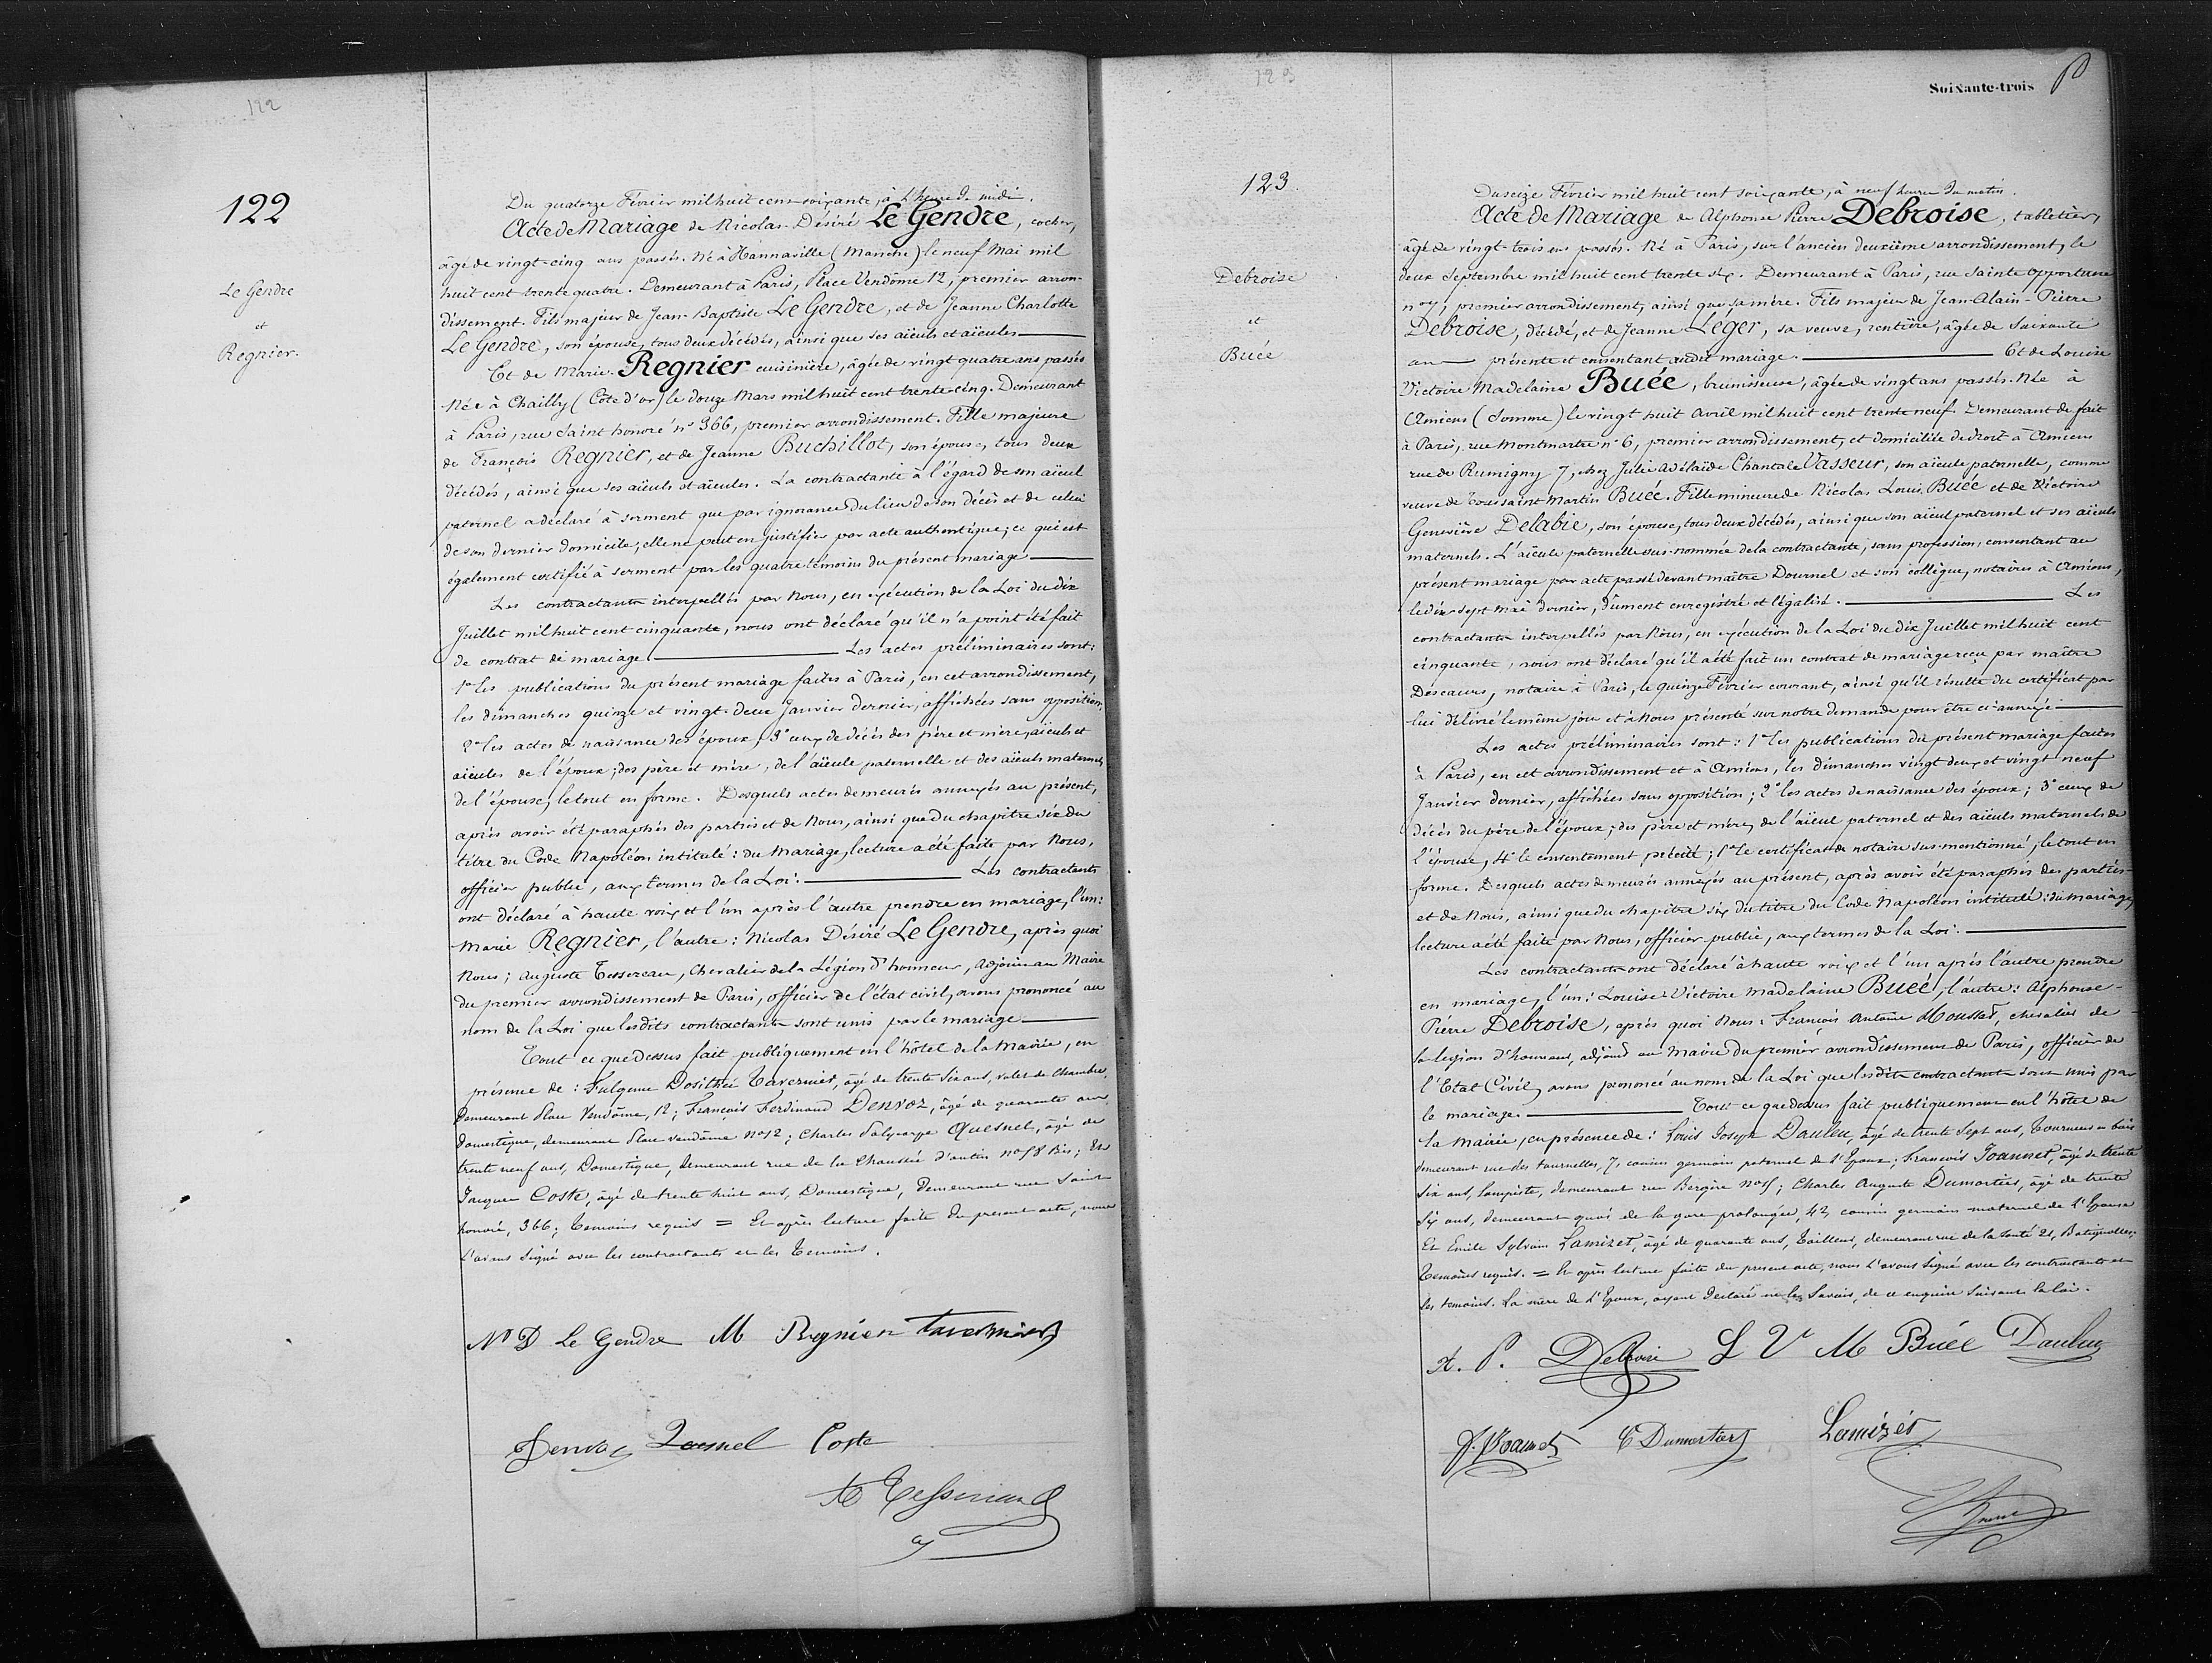 122
122
Le Gendre
et
Regnier.
Du quatorze Février mil huit cent soixante, à l'heure de midi.
Acte de Mariage de Nicolas-Désiré Le Gendre, cocher,
âgé de vingt-cinq ans passés. Né à (Manche) le neuf Mai mil
huit cent trente quatre. Demeurant à Paris, Place Vendôme 12, premier arron-
dissement. Fils majeur de Jean-Baptiste Le Gendre, et de Jeanne Charlotte
Le Gendre, son épouse, tous deux décédés, ainsi que ses aïeuls et aïeules
Et de Marie Regnier cuisinière, âgée de vingt quatre ans passés
Née à Chailly (Côte d'or) le douze Mars mil huit cent trente-cinq. Demeurant
à Paris, rue Saint honoré n° 366, premier arrondissement. Fille majeure
de François Regnier, et de Jeanne Buchillot, son épouse, tous deux
décédés, ainsi que ses aïeuls et aïeules. La contractante à l'égard de son aïeul
paternel a déclaré à serment que par ignorance du lieu de son décès et de celui
de son dernier domicile, elle ne peut en justifier par acte authentique; ce qui est
également certifié à serment par les quatre témoins du présent mariage
Les contractants interpellés par Nous, en exécution de la Loi du dix
Juillet mil huit cent cinquante, nous ont déclaré qu'il n'a point été fait
de contrat de mariage. Les actes préliminaires sont:
1° les publications du présent mariage faites à Paris, en cet arrondissement,
les dimanches quinze et vingt-deux Janvier dernier, affichées sans opposition;
2° les actes de naissance des époux; 3° ceux de décès des père et mère, aïeuls et
aïeules de l'époux; des père et mère, de l'aïeule paternelle et des aïeuls maternels
de l'épouse, le tout en forme. Desquels actes demeurés annexés au présent,
après avoir été paraphés des parties et de Nous, ainsi que du chapitre six du
titre du Code Napoléon intitulé: du Mariage, lecture a été faite par Nous,
officier public, aux termes de la Loi. Les contractants
ont déclaré à haute voix et l'un après l'autre prendre en mariage, l'un:
Marie Regnier, l'autre: Nicolas Désiré Le Gendre, après quoi
Nous; Auguste Tessereau, Chevalier de la Légion d'honneur, adjoint au Maire
du premier arrondissement de Paris, officier de l'état civil, avons prononcé au
nom de la Loi que lesdits contractants sont unis par le mariage
Tout ce que dessus fait publiquement en l'hôtel de la Mairie, en
présence de: Fulgence Dosithée Tavernier, âgé de trente six ans, valet de chambre,
demeurant Place Vendôme, 12; François Ferdinand Denvoz, âgé de quarante ans
Domestique, demeurant Place Vendôme n° 12; Charles Polycarpe Quesnel, âgé de
trente neuf ans, Domestique, demeurant rue de la Chaussée d'antin n° 58 bis; Et
Jacques Coste, âgé de trente huit ans, Domestique, Demeurant rue Saint
honoré, 366; témoins requis = Et après lecture faite du présent acte, nous
l'avons signé avec les contractants et les témoins.
N D Le Gendre M Regnier Tavernier
Denvoz Quesnel Coste
A Tessereau
123
Soixante-trois
123.
Debroise
et
Buée
Du seize Février mil huit cent soixante, à neuf heures du matin.
Acte de Mariage de Alphonse Pierre Debroise, tabletier,
âgé de vingt-trois ans passés. Né à Paris, sur l'ancien deuxième arrondissement, le
deux Septembre mil huit cent trente six. Demeurant à Paris, rue Sainte opportune
n° 7, premier arrondissement, ainsi que sa mère. Fils majeur de Jean-Alain-Pierre
Debroise, décédé, et de Jeanne Leger, sa veuve, rentière, âgée de Soixante
ans présente et consentant audit mariage. Et de Louise
Victoire Madelaine Buée, brunisseuse, âgée de vingt ans passés. Née à
Amiens (Somme) le vingt huit avril mil huit cent trente neuf. Demeurant de fait
à Paris, rue Montmartre n° 6, premier arrondissement, et domiciliée de droit à Amiens
rue de Rumigny 7, chez Julie Adélaïde Chantale Vasseur, son aïeule paternelle, comme
veuve de Toussaint Martin Buée. Fille mineure de Nicolas Louis Buée et de Victoire
Geneviève Delabie, son épouse, tous deux décédés, ainsi que son aïeul paternel et ses aïeuls
maternels. L'aïeule paternelle sus-nommée de la contractante, sans profession, consentant au
présent mariage par acte passé devant maître Dournel et son collègue, notaires à Amiens,
le dix-sept mai dernier, dûment enregistré et légalisé. Les
contractants interpellés par Nous, en exécution de la Loi du dix Juillet mil huit cent
cinquante, nous ont déclaré qu'il a été fait un contrat de mariage reçu par maître
Descaurs, notaire à Paris, le quinze Février courant, ainsi qu'il résulte du certificat par
lui délivré le même jour et à Nous présenté sur notre demande pour être ci-annexé
Les actes préliminaires sont: 1° les publications du présent mariage faites
à Paris, en cet arrondissement et à Amiens, les dimanches vingt deux et vingt neuf
Janvier dernier, affichées sans opposition; 2° les actes de naissance des époux; 3° ceux de
décès du père de l'époux; des père et mère, de l'aïeul paternel et des aïeuls maternels de
l'épouse, 4° le consentement précité; le certificat de notaire sus-mentionné, le tout en
forme. Desquels actes demeurés annexés au présent, après avoir été paraphés des parties
et de Nous, ainsi que du chapitre six du titre du Code Napoléon intitulé: du mariage,
lecture a été faite par Nous, officier public, aux termes de la Loi.
Les contractants ont déclaré à haute voix et l'un après l'autre prendre
en mariage, l'un: Louise Victoire Madelaine Buée, l'autre: Alphonse-
Pierre Debroise, après quoi Nous: François Antoine chevalier de
la legion d'honneur, adjoint au Maire du premier arrondissement de Paris, officier de
l'Etat Civil, avons prononcé au nom de la Loi que lesdits contractants sont unis par
le mariage. Tout ce que dessus fait publiquement en l'hôtel de
la Mairie, en présence de: Louis Joseph Dauleu, âgé de trente Sept ans, Tourneur en bois
demeurant rue des tournelles, 7, cousin germain paternel de l'Epoux; François Joannet, âgé de trente
six ans, lampiste, demeurant rue Bergère n°; Charles Auguste Dumortier, âgé de trente
six ans, demeurant quai de la gare prolongée, 42 cousin germain maternel de l'Epouse
Et Emile Sylvain Lamizet, âgé de quarante ans, Tailleur, demeurant rue de la Santé 21, Batignolles,
témoins requis. = Et après lecture faite du présent acte, nous l'avons signé avec les contractants et
les témoins. La mère de l'Epoux, ayant déclaré ne le Savoir, de ce enquise Suivant la loi.
A. P. Debroise L V M Buée Dauleu
F. Joannet C Dumortier Lamizet